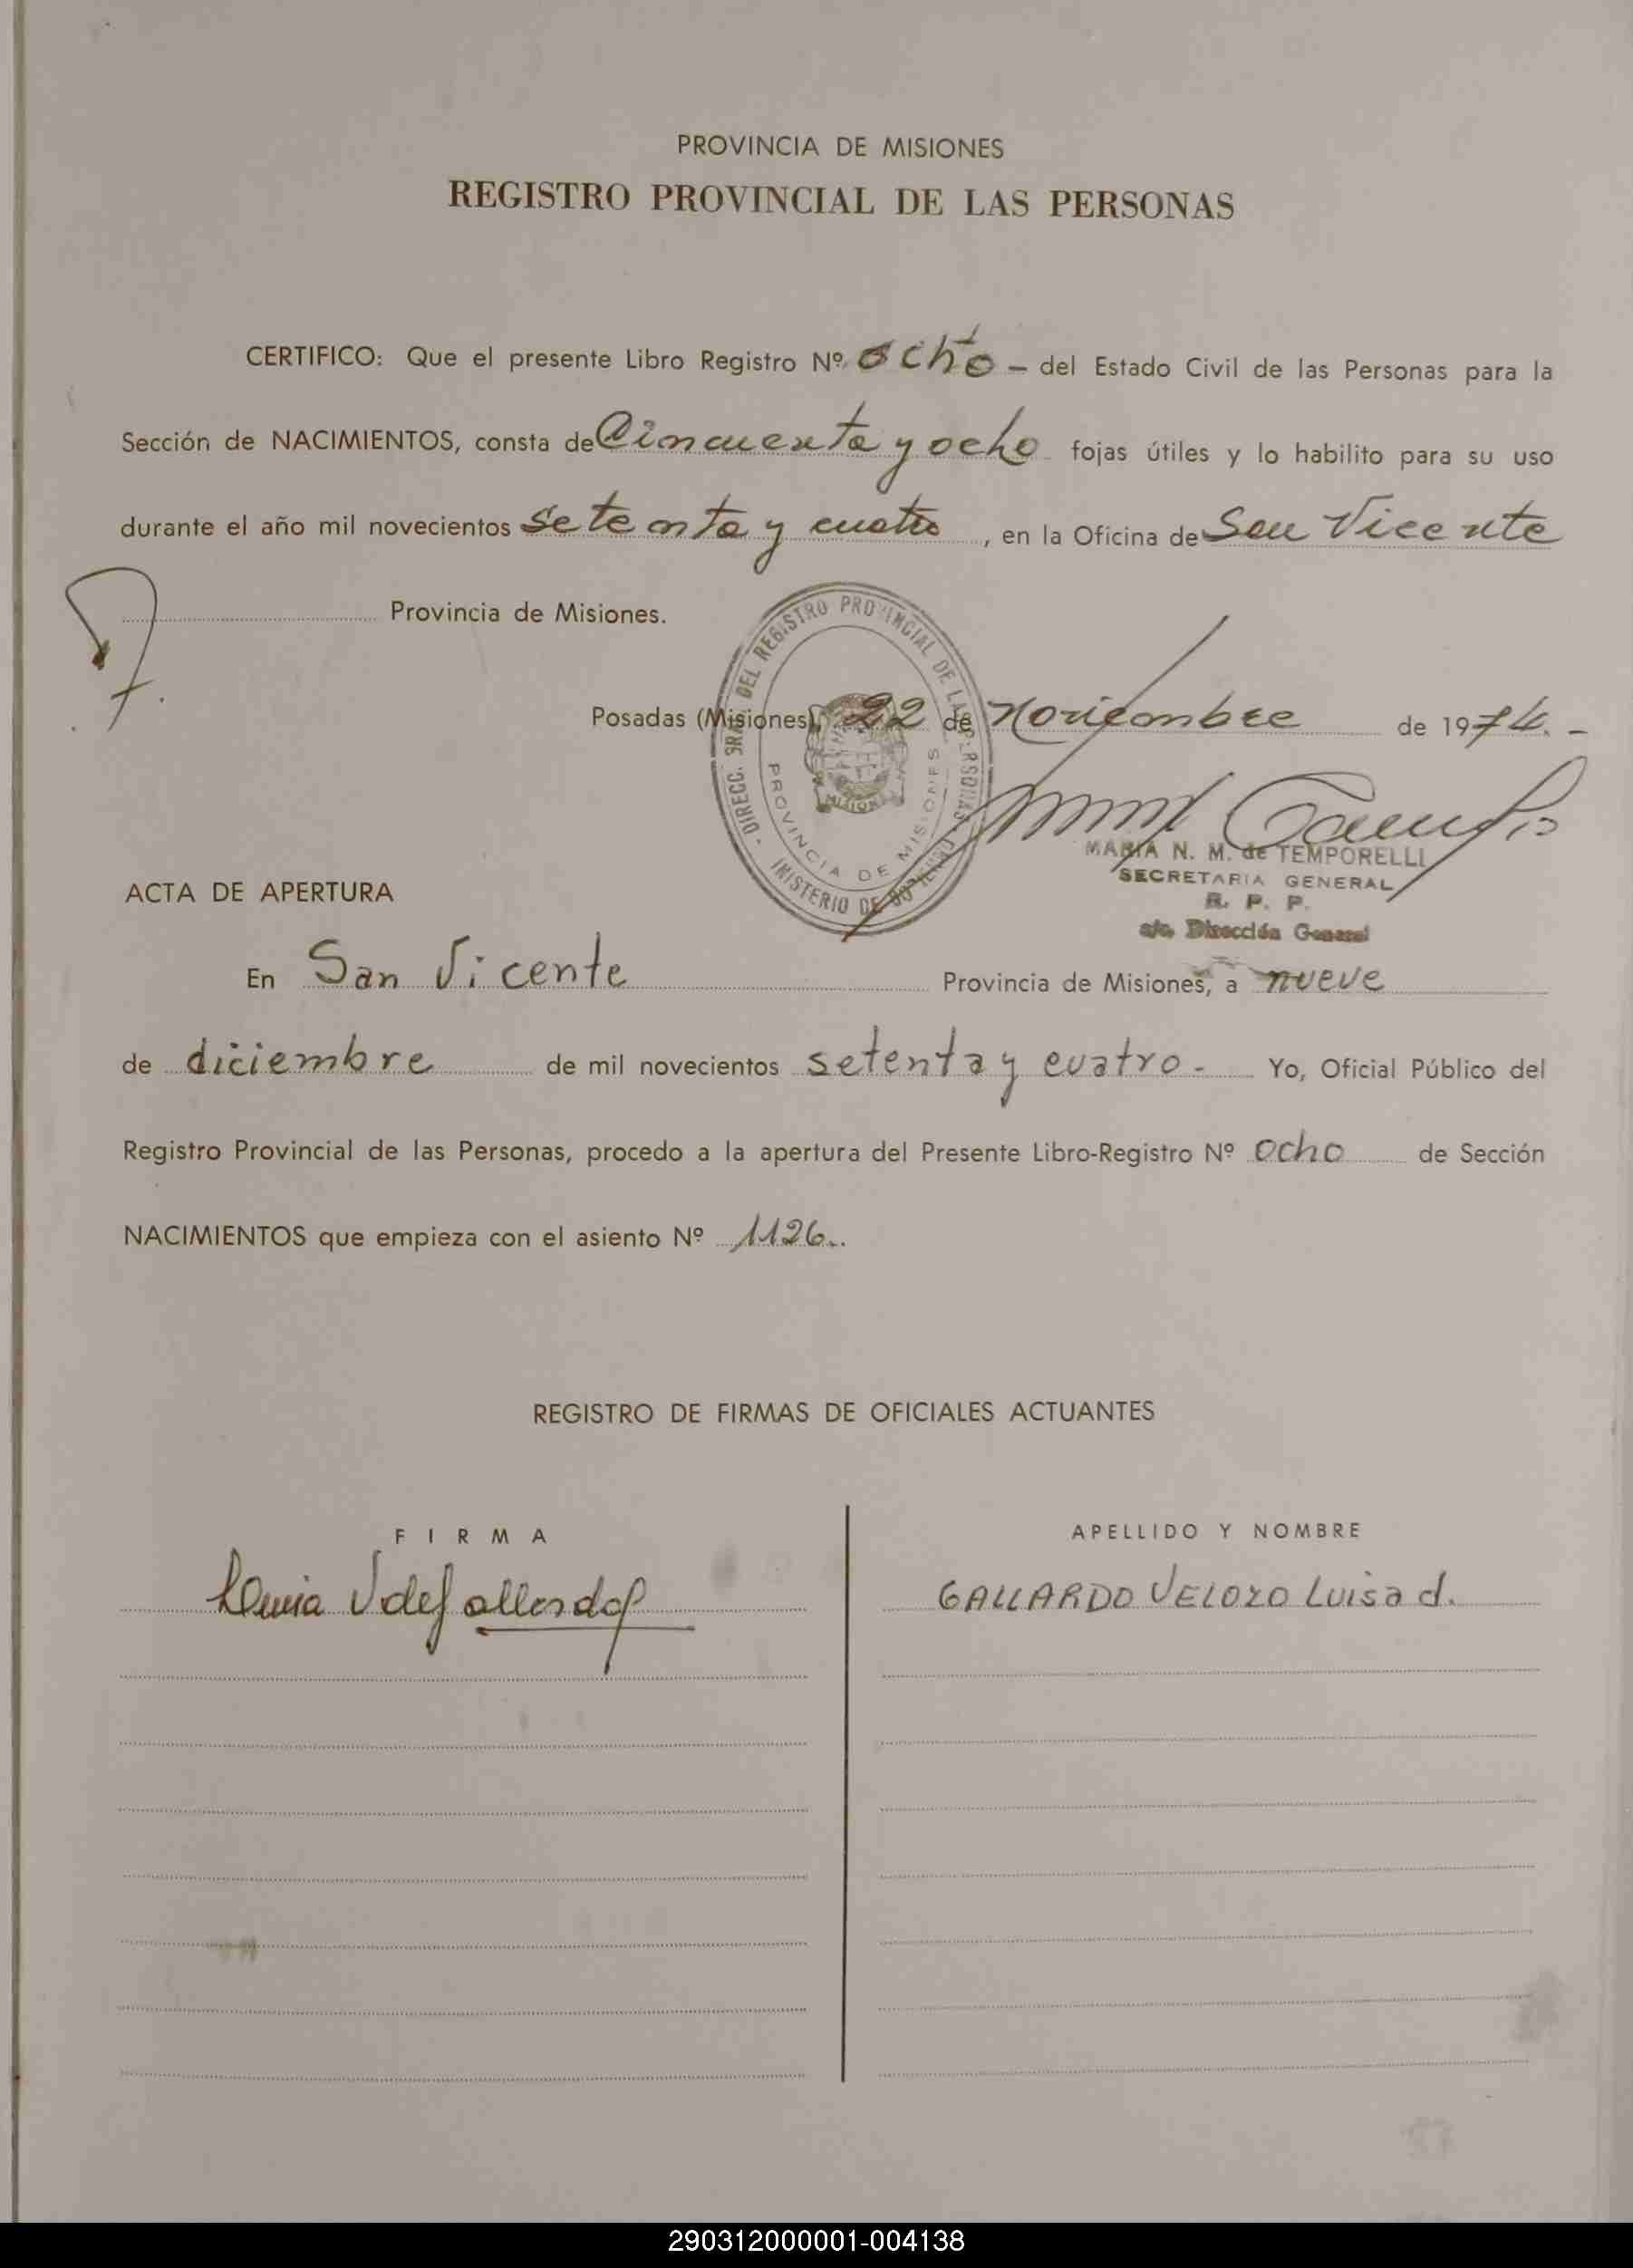 PROVINCIA DE MISIONES
REGISTRO PROVINCIAL DE LAS PERSONAS
CERTIFICO: Que el presente Libro Registro Nº ocho – del Estado Civil de las Personas para la
Sección de NACIMIENTOS, consta de Cincuenta y ocho fojas útiles y lo habilito para su uso
durante el año mil novecientos setenta y cuatro, en la Oficina de San Vicente
Provincia de Misiones.
DIRECC. GRAL. DEL REGISTRO PROVINCIAL DE LAS PERSONAS
MINISTERIO DE GOBIERNO
PROVINCIA DE MISIONES
MISIONES
Posadas (Misiones), 22 de Noviembre de 1974. -
MARIA N. M. de TEMPORELLI
SECRETARIA GENERAL
R. P. P.
a/c. Dirección General
ACTA DE APERTURA
En San Vicente Provincia de Misiones, a nueve
de diciembre de mil novecientos setenta y cuatro - Yo, Oficial Público del
Registro Provincial de las Personas, procedo a la apertura del Presente Libro-Registro Nº ocho de Sección
NACIMIENTOS que empieza con el asiento Nº 1126..
REGISTRO DE FIRMAS DE OFICIALES ACTUANTES
FIRMA
APELLIDO Y NOMBRE
GALLARDO VELOZO Luisa d.
290312000001-004138